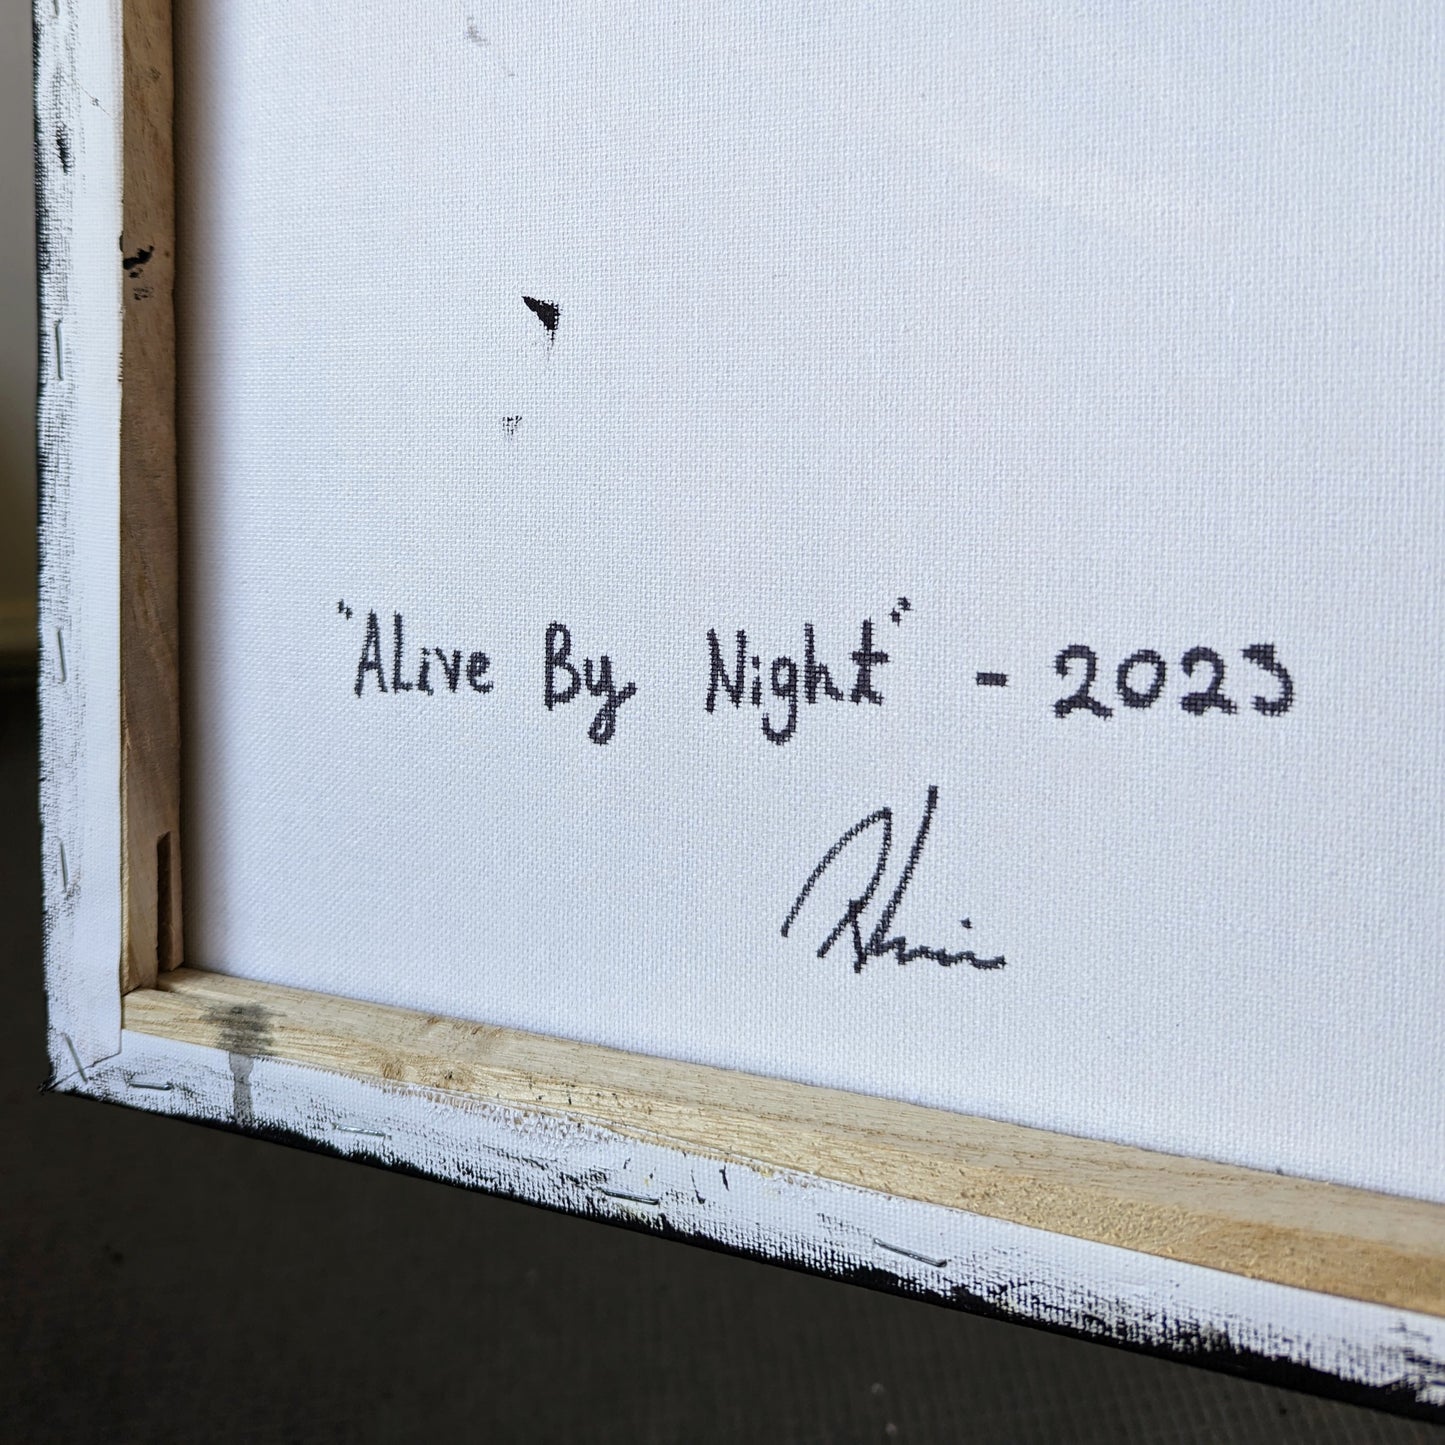 "Alive By Night" - 2023